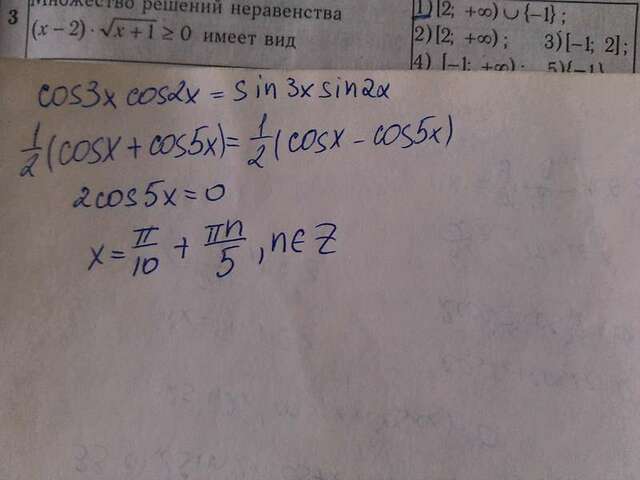 Множество решений неравенства
3 (x − 2) · √(x + 1) ≥ 0 имеет вид
1) [2; +∞) ∪ {−1};
2) [2; +∞); 3) [−1; 2];
4) [−1; +∞); 5) {−1}
cos3x cos2x = sin3x sin2x
1/2 (cosx + cos5x) = 1/2 (cosx − cos5x)
2cos5x = 0
x = π/10 + πn/5, n∈Z